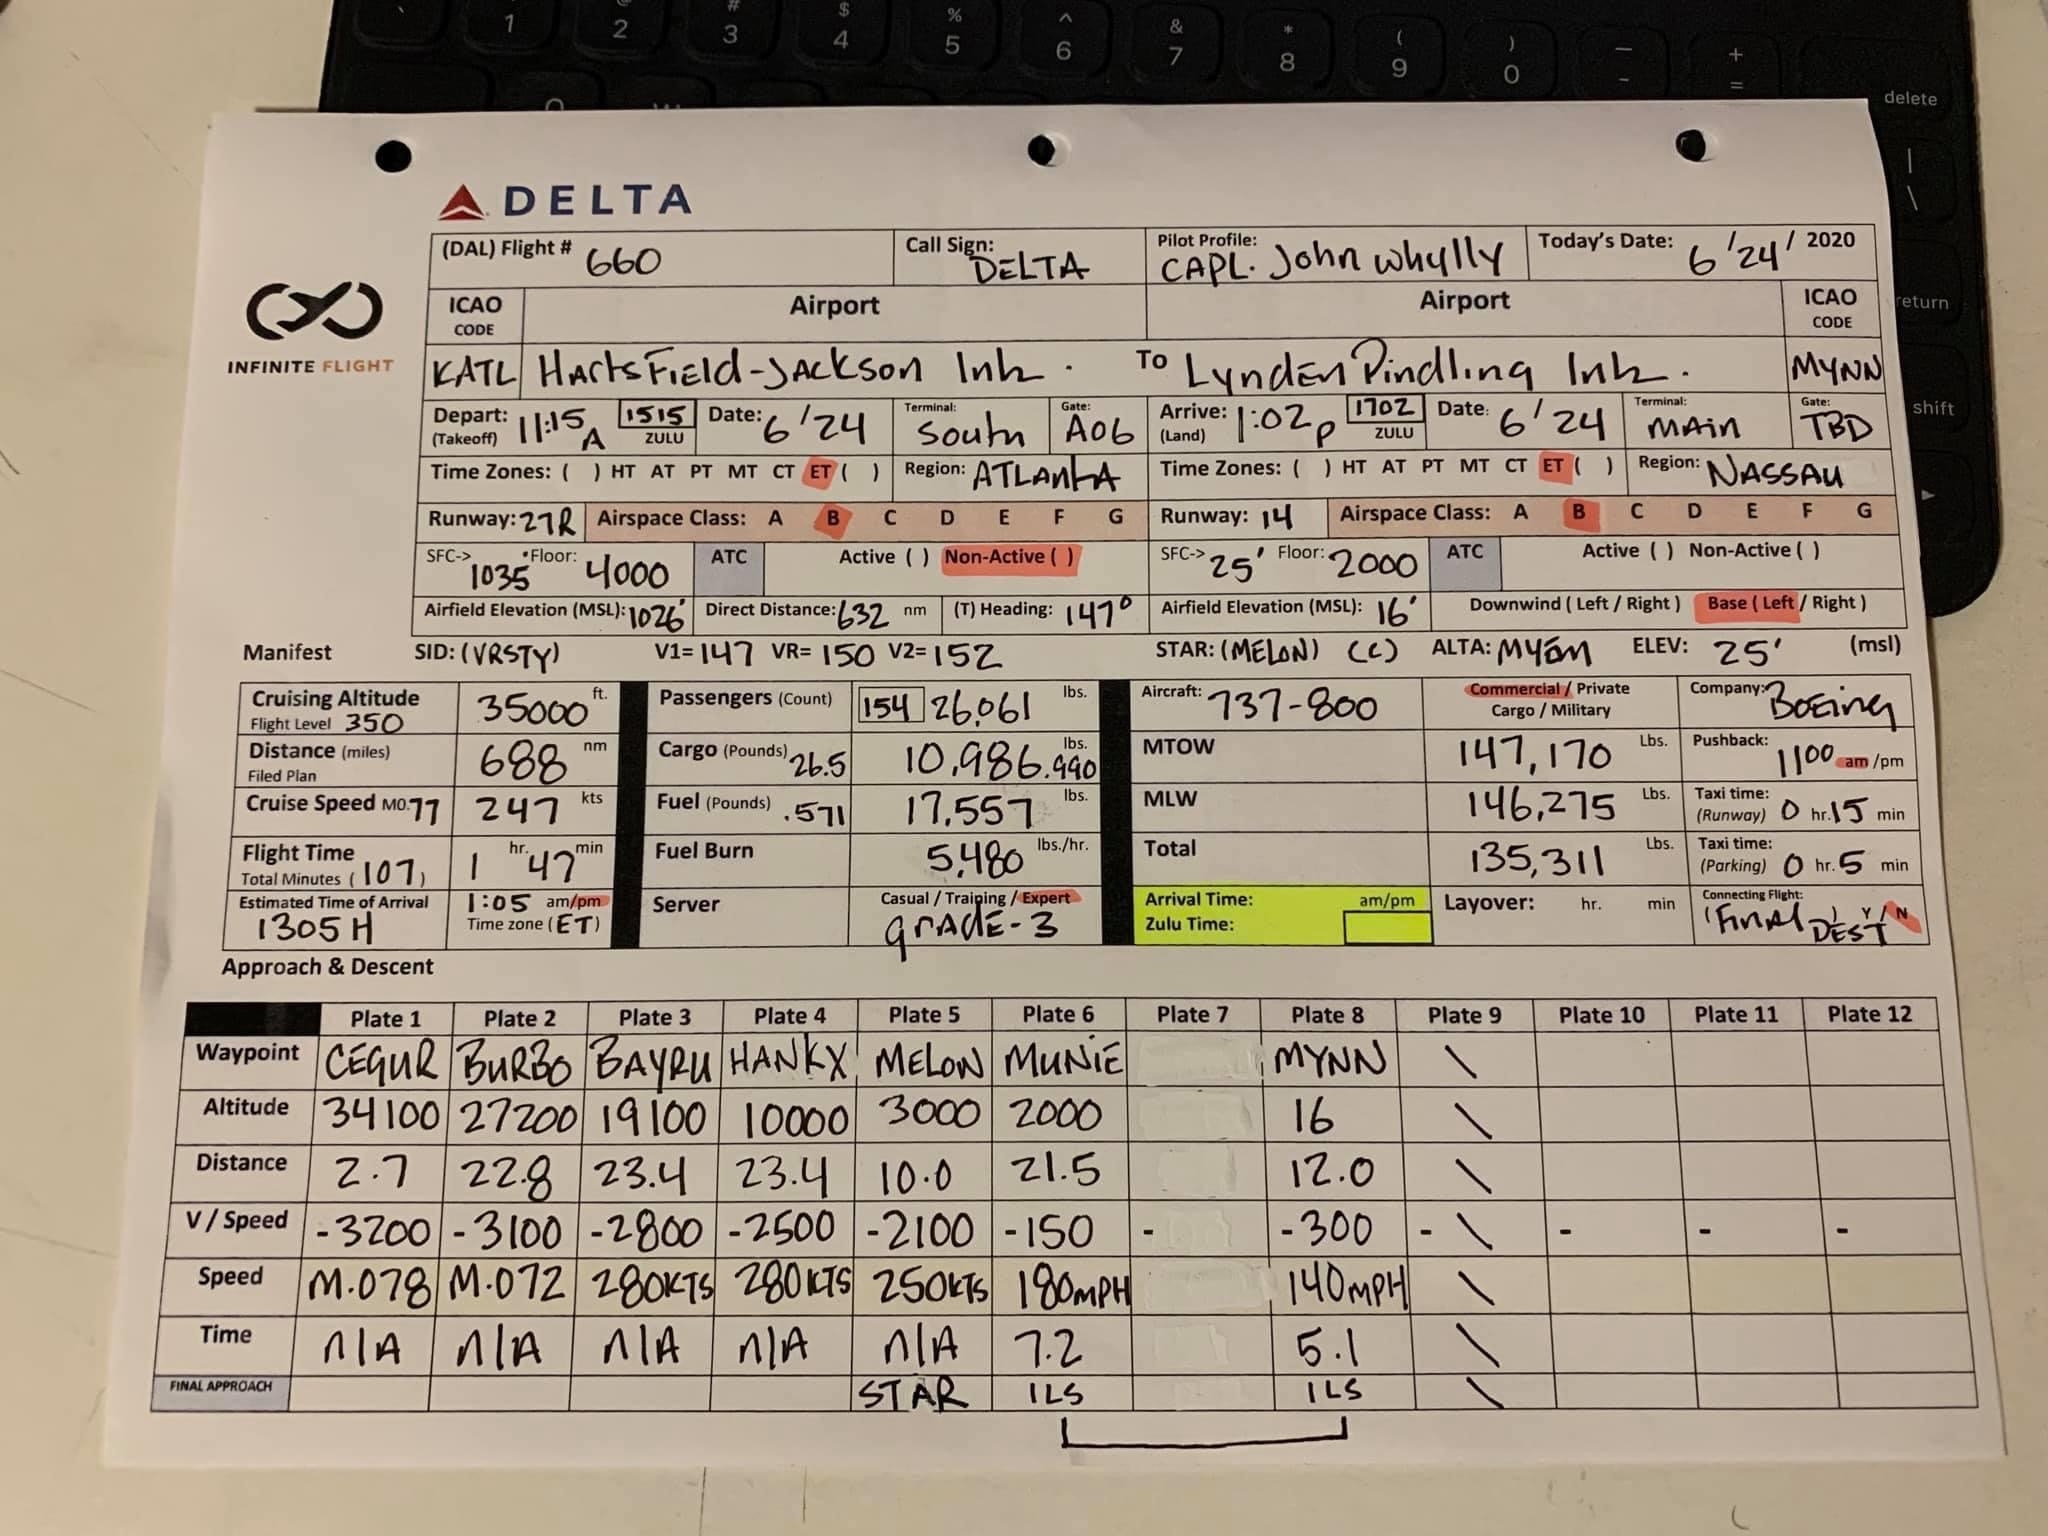 ` 1 @ 2 # 3 $ 4 % 5 ^ 6 & 7 * 8 ( 9 ) 0 — - + =
delete
| \
return
shift
DELTA
INFINITE FLIGHT
(DAL) Flight # 660 Call Sign: DELTA Pilot Profile: CAPL. John Whylly Today's Date: 6/24/2020
ICAO CODE Airport Airport ICAO CODE
KATL HartsField-Jackson Int. TO Lynden Pindling Int. MYNN
Depart: (Takeoff) 11:15 A 1515 ZULU Date: 6/24 Terminal: South Gate: A06 Arrive: (Land) 1:02 P 1702 ZULU Date: 6/24 Terminal: MAIN Gate: TBD
Time Zones: ( ) HT AT PT MT CT ET ( ) Region: ATLANTA Time Zones: ( ) HT AT PT MT CT ET ( ) Region: NASSAU
Runway: 27R Airspace Class: A B C D E F G Runway: 14 Airspace Class: A B C D E F G
SFC-> 1035' Floor: 4000 ATC Active ( ) Non-Active ( ) SFC-> 25' Floor: 2000 ATC Active ( ) Non-Active ( )
Airfield Elevation (MSL): 1026' Direct Distance: 632 nm (T) Heading: 147° Airfield Elevation (MSL): 16' Downwind ( Left / Right ) Base ( Left / Right )
Manifest SID: (VRSTY) V1= 147 VR= 150 V2= 152 STAR: (MELON) (C) ALTA: MYEM ELEV: 25' (msl)
Cruising Altitude Flight Level 350 35000 ft. Passengers (Count) 154 26,061 lbs. Aircraft: 737-800 Commercial / Private Cargo / Military Company: Boeing
Distance (miles) Filed Plan 688 nm Cargo (Pounds) 26.5 10,986.990 lbs. MTOW 147,170 Lbs. Pushback: 1100 am /pm
Cruise Speed M0.77 247 kts Fuel (Pounds) .571 17,557 lbs. MLW 146,275 Lbs. Taxi time: (Runway) 0 hr. 15 min
Flight Time Total Minutes ( 107 ) 1 hr. 47 min Fuel Burn 5,480 lbs./hr. Total 135,311 Lbs. Taxi time: (Parking) 0 hr. 5 min
Estimated Time of Arrival 1305 H 1:05 am/pm Time zone ( ET ) Server Casual / Training / Expert grade-3 Arrival Time: am/pm Zulu Time: Layover: hr. min Connecting Flight: (Final) DEST Y / N
Approach & Descent
Plate 1 Plate 2 Plate 3 Plate 4 Plate 5 Plate 6 Plate 7 Plate 8 Plate 9 Plate 10 Plate 11 Plate 12
Waypoint CEGUR BURBO BAYRU HANKX MELON MUNIE MYNN \
Altitude 34100 27200 19100 10000 3000 2000 16 \
Distance 2.7 22.8 23.4 23.4 10.0 21.5 12.0 \
V / Speed -3200 -3100 -2800 -2500 -2100 -150 - -300 - \ - - -
Speed M.078 M.072 280KTS 280KTS 250KTS 180MPH 140MPH \
Time n/A n/A n/A n/A n/A 7.2 5.1 \
FINAL APPROACH STAR ILS ILS \